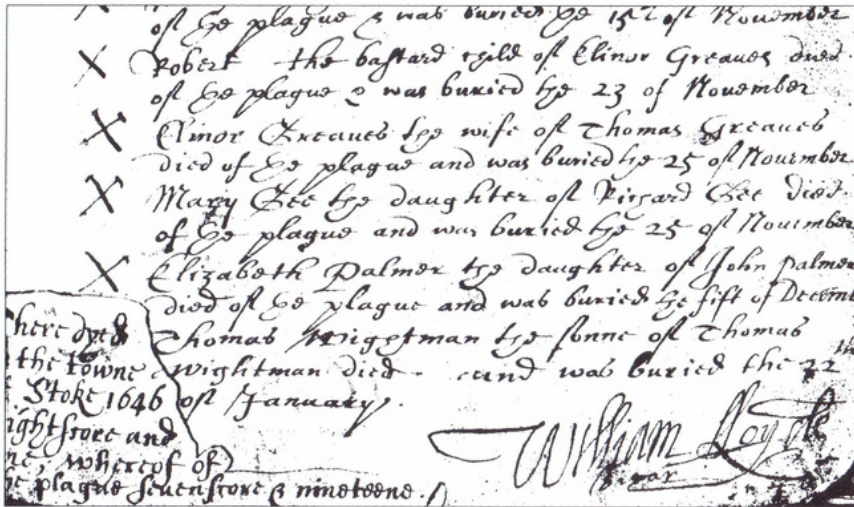 of ye plague & was buried ye 15th of November
Robert the bastard child of Elinor Greaves dyed
of ye plague & was buried the 23 of November
Elinor Greaves the wife of Thomas Greaves
died of ye plague and was buried ye 25 of November
Mary Gee the daughter of Richard Gee died
of ye plague and was buried ye 25 of November
Elizabeth Palmer the daughter of John Palmer
died of ye plague and was buried ye fift of Decemb
Thomas Wightman the sonne of Thomas
Wightman died and was buried the 22th
of January.
here dyed
the towne
Stoke 1646
ightscore and
ne, whereof of
e plague sevenscore & nineteene.
William Loyde
vicar